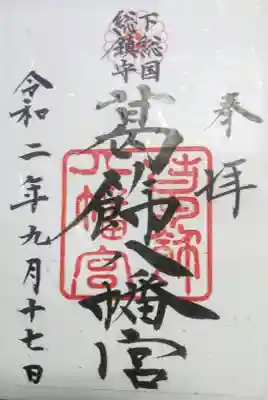 奉拝
下総国
総鎮守
葛飾八幡宮
葛飾
八幡宮
令和二年九月十七日